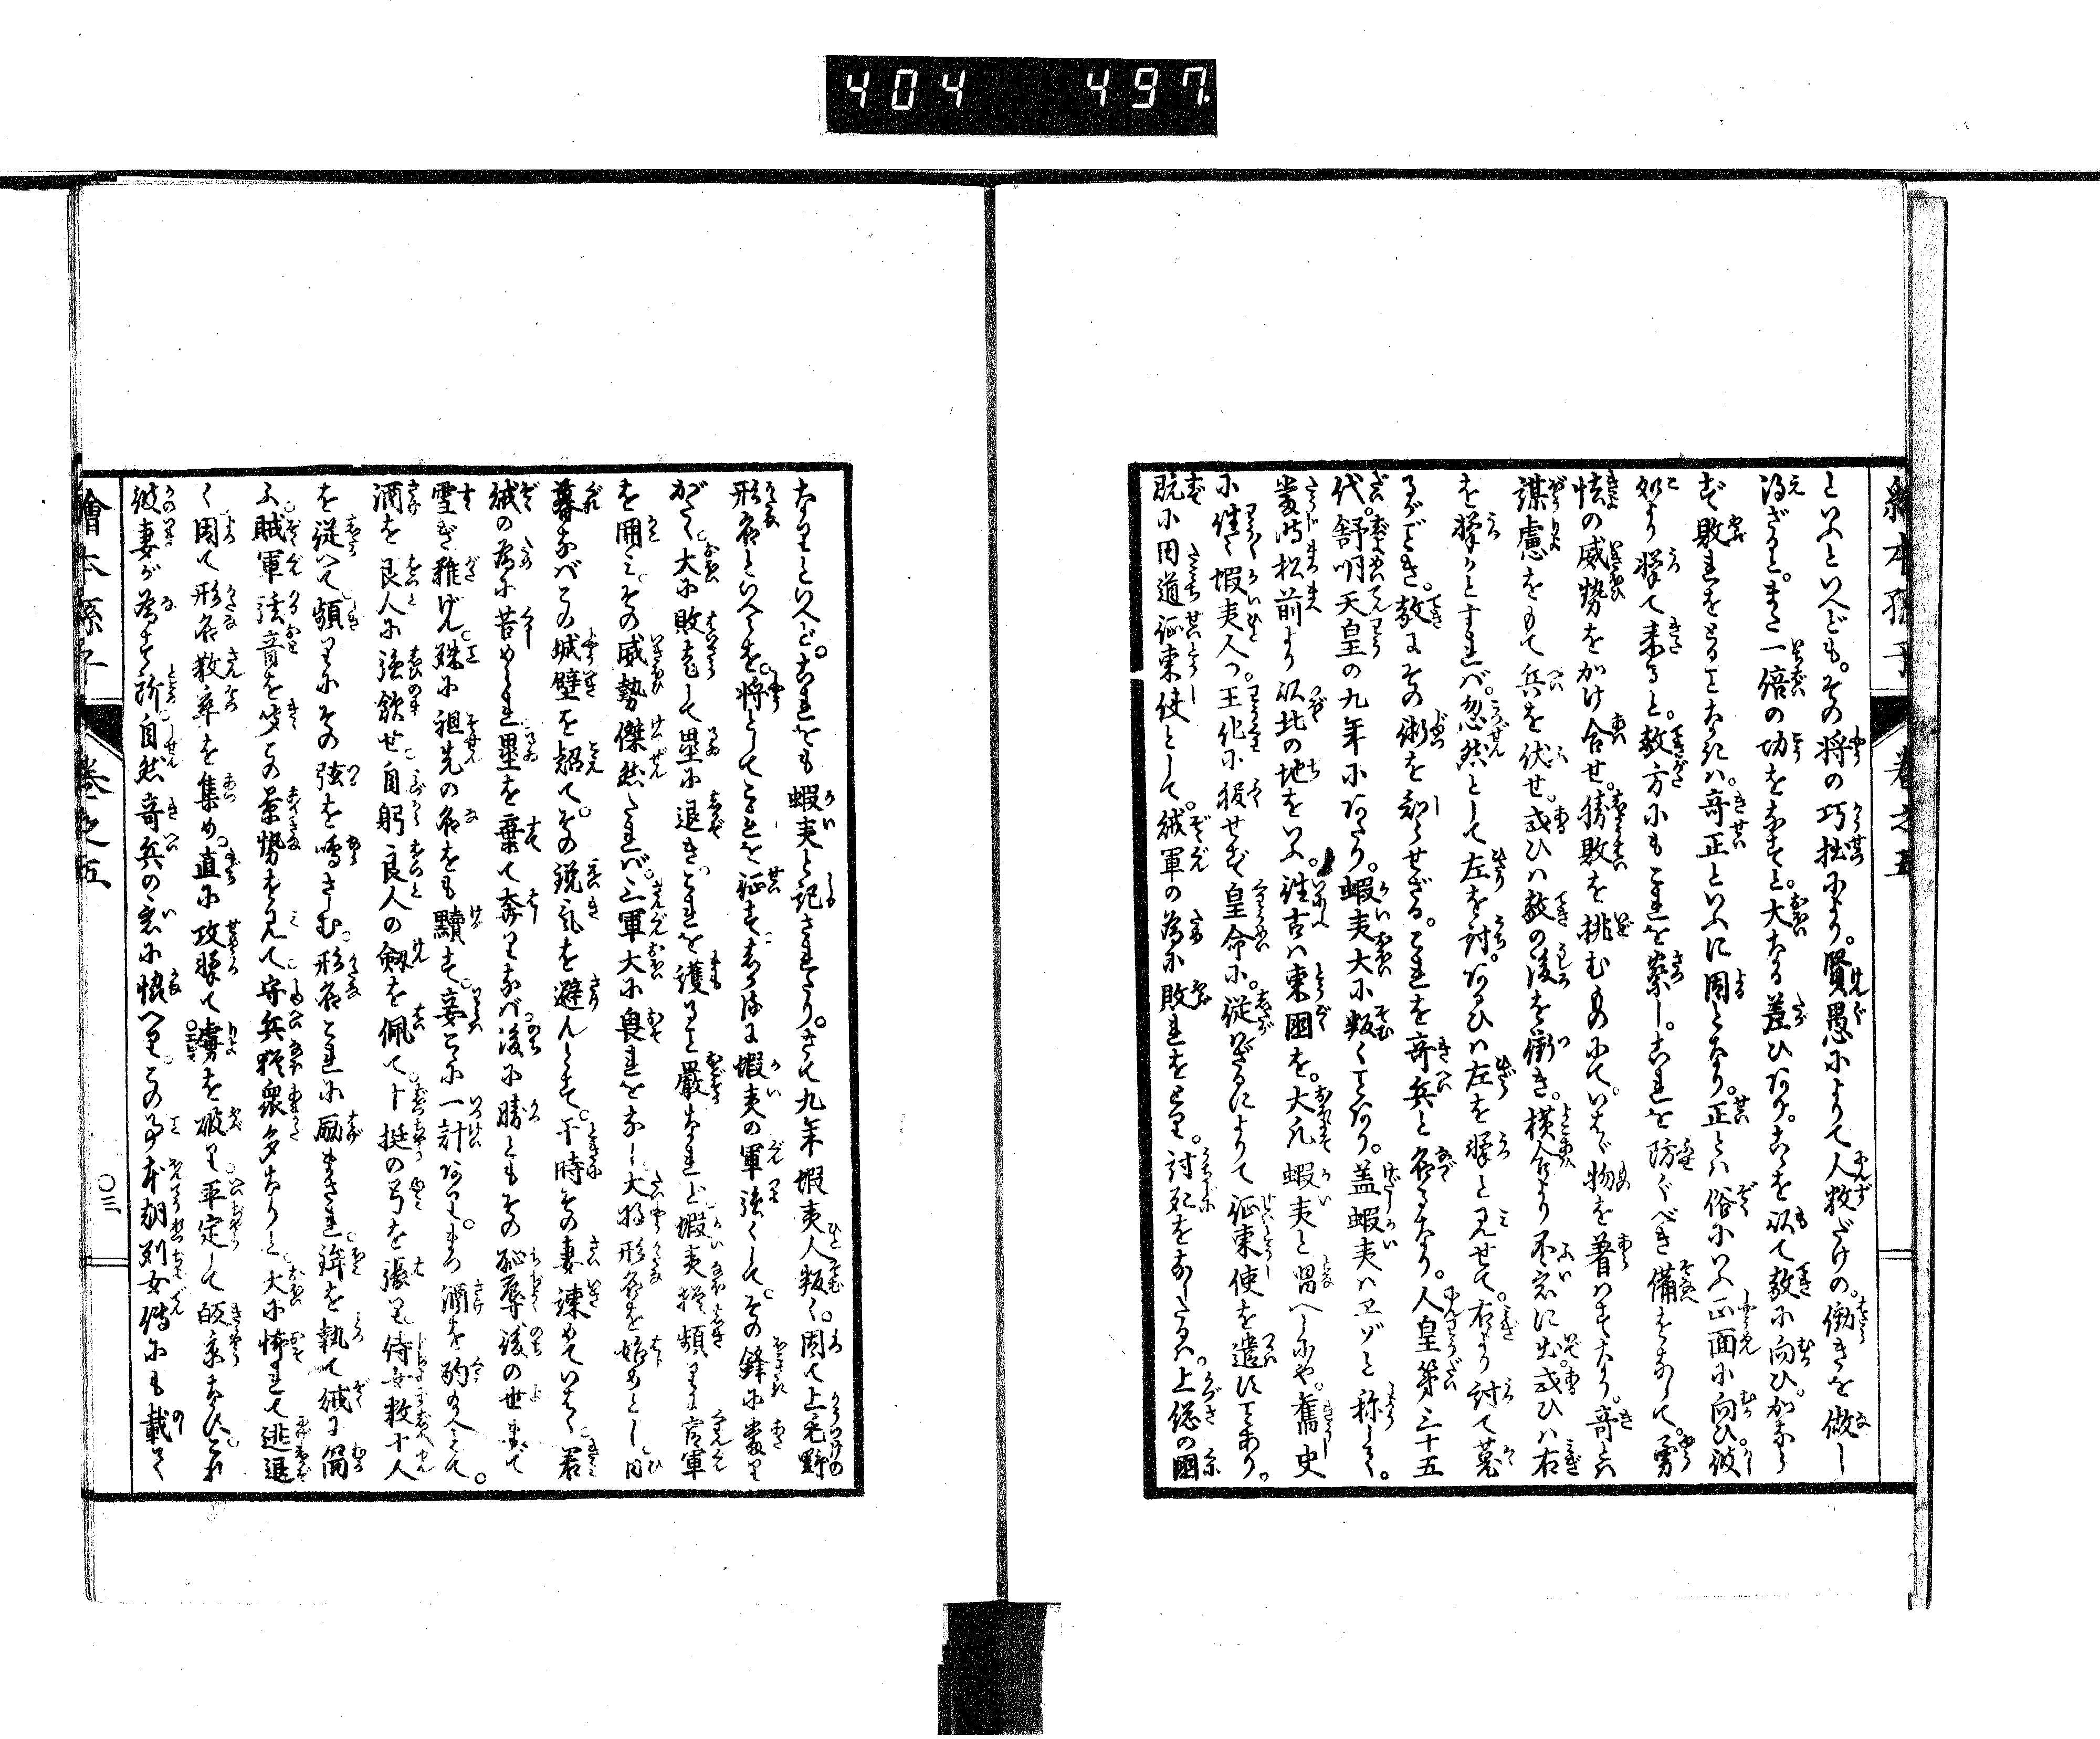 404 497
繪本孫子 巻之五
といふといへども。その将の巧拙により。賢愚によりて人数だけの。働きを做し
得ざると。また一倍の功をなすと。大なる差ひあり。これを以て敵に向ひ。かなら
ず敗れをとることなきハ。奇正といふに因となり。正とハ俗にいふ正面に向ひ。彼
如より撃て来ると。敵方にもこれを察し。これを防ぐべき備をなして。勇
怯の威勢をかけ合せ。勝敗を挑むものにて。いはゞ物を着ハすなり。奇とハ
謀慮をもて兵を伏せ。或ひハ敵の後を衝き。横合より不意に出。或ひハ右
を撃かとすれバ。忽然として左を討。あるひハ左を撃と見せて。右より討て
るがごとき。敵にその術を知らせざる。これを奇兵と名るなり。人皇第三十五
代。舒明天皇の九年にあたり。蝦夷大に叛くことあり。盖蝦夷ハヱゾと称して。
當時松前より以北の地をいふ。往古ハ東國を。大凡蝦夷と唱へしにや。舊史
に往々蝦夷人の。王化に服せず皇命に。従ハざるによりて征東使を遣はすことあり。
既に田道征東使として。賊軍の為に敗れをとり。討死をなしたるハ。上総の國
なりといへど。これをも蝦夷と記されたり。さて九年蝦夷人叛く。因て上毛野
形名といへるを。将としてこれを征す。しかるに蝦夷の軍強くして。その鋒に當り
がたく。大に敗走して塁に退き。これを護ること嚴なれど。蝦夷猶頻りに官軍
を囲こみ。その威勢傑然たれバ。三軍大に畏れをなし大将形名を始めとし日
暮なバこの城壁を越て。その鋭気を避んとす。干時その妻諫めていはく。君
賊の為に苦められ塁を棄て奔りなバ。後に勝ともその恥辱後の世まで
雪ぎ難けん。殊に祖先の名をも黷す。妾こゝに一計あり。まづ酒を酌めへとて。
酒を良人に強飲せ。自躬良人の剱を佩て。十挺の弓を張り。侍女数十人
を従へて。頻りにその弦を鳴さしむ。形名これに励まされ。鋒を執て賊に向
ふ。賊軍弦音を聞この景勢を見て。守兵猶衆多なりと。大に怖れて逃退
く。因て形名散卒を集め。直に攻撃て虜を破り。平定して皈京なす。これ
彼妻が為す所。自然奇兵の意に愜へり。この事本朝列女傳にも載て
繪本孫子 巻之五 〇三